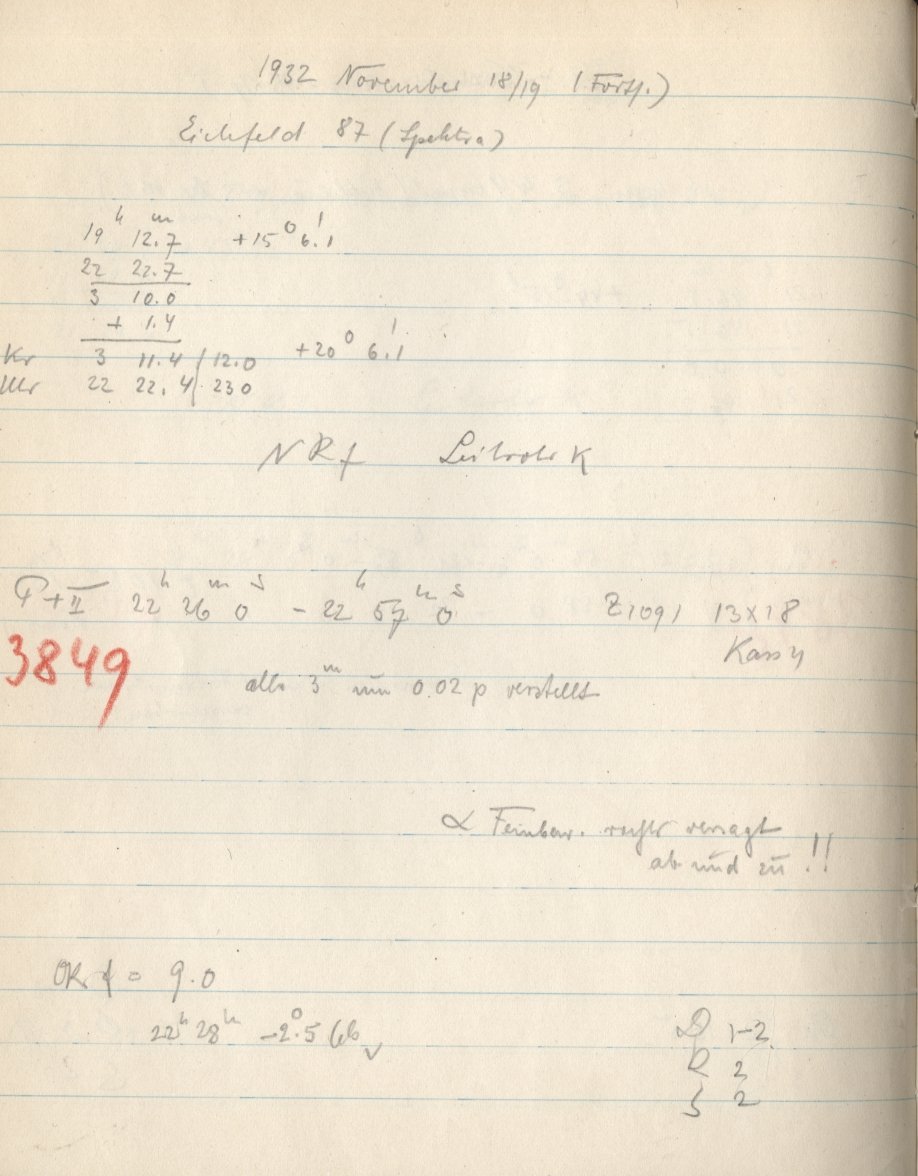 1932 November 18/19 (Forts.)
Eichfeld 87 (Spektra)
19h 12.m7 +15° 6.'1
22 22.7
3 10.0
+ 1.4
Kr 3 11.4 / 12.0 +20° 6.'1
Ur 22 22.4 / 23 0
NRf Leitrohr K
P+II 22h 26m 0s - 22h 57m 0s Z1091 13x18
Kass 4
3849
alle 3m um 0.02 p verstellt
α Feinbew. rechts versagt
ab und zu !!
OKr f = 9.0
22h 28m -2.°5
D 1-2
R 2
S 2